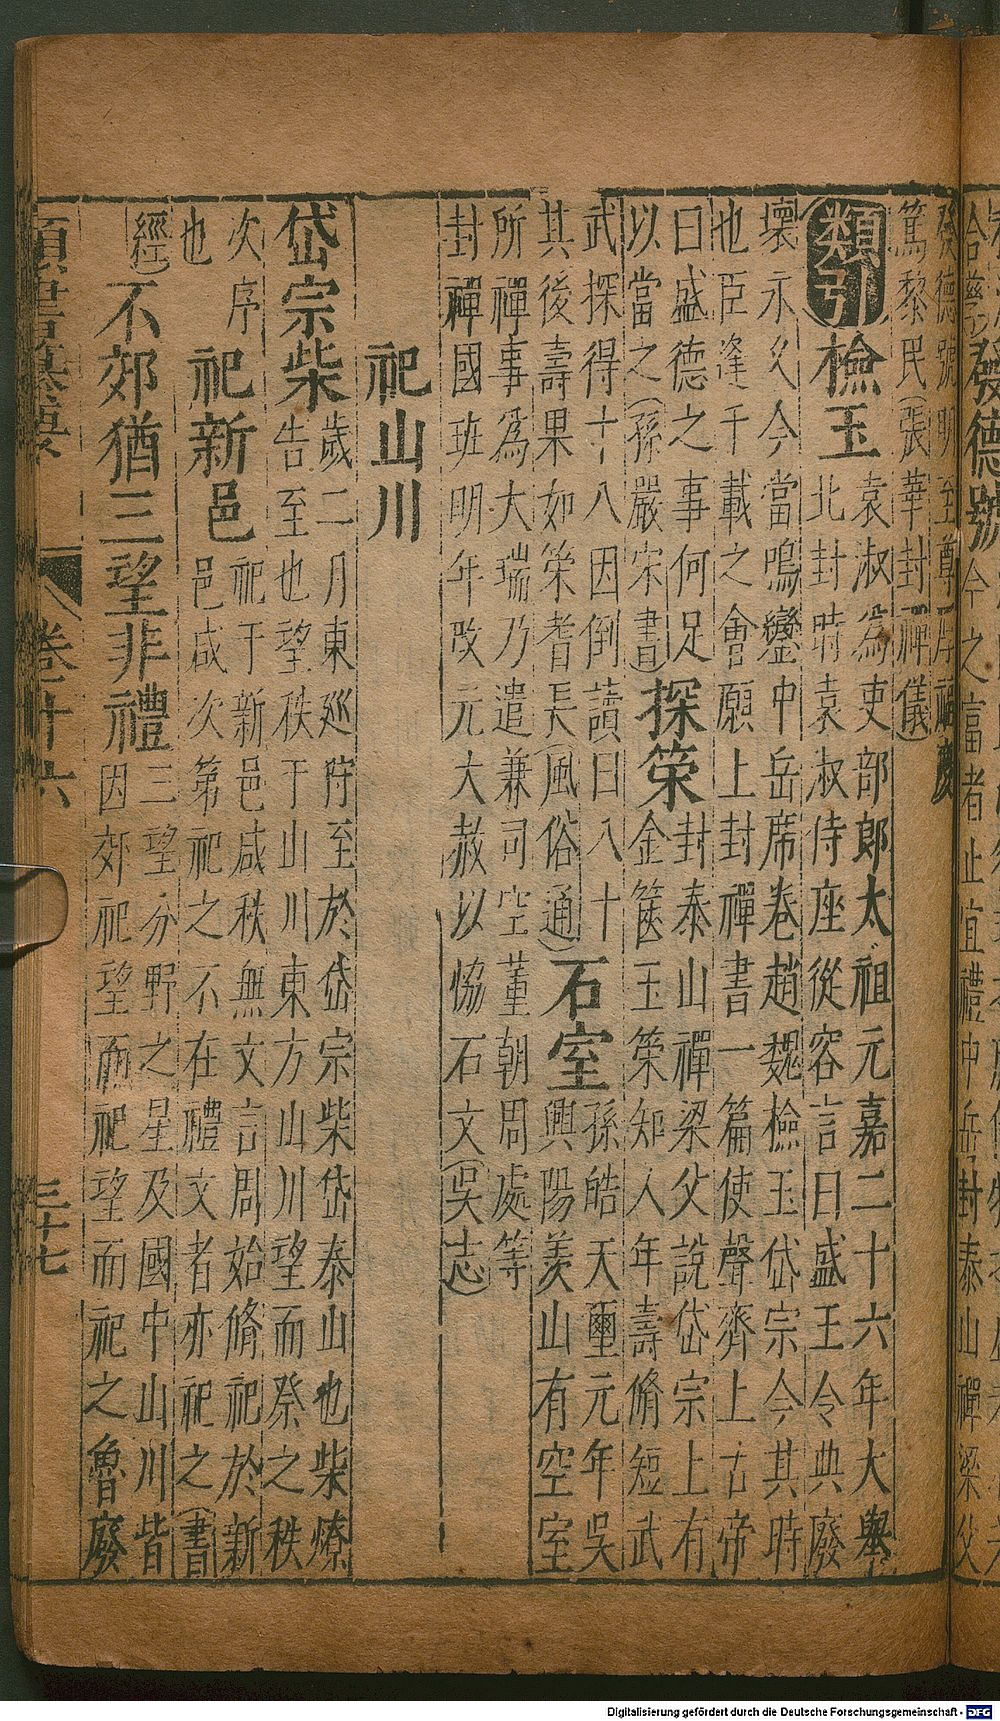 發德號明至尊
篤黎民(張華封禪儀)
類引
檢玉
袁淑為吏部郎太祖元嘉二十六年大舉
北封時袁淑侍座從容言曰盛王令典廢
壞永久今當鳴鑾中岳席卷趙魏檢玉岱宗今其時
也臣逢千載之會願上封禪書一篇使聲齊上古帝
曰盛德之事何足
以當之(孫嚴宋書)
探筞
封泰山禪梁父說岱宗上有
金篋玉筞知人年壽脩短武
武探得十八因倒讀曰八十
其後壽果如筞耆長(風俗通)
石室
孫皓天璽元年吳
興陽羨山有空室
所禪事為大瑞乃遣兼司空董朝周處等
封禪國班明年改元大赦以恊石文(吳志)
祀山川
岱宗柴
歲二月東廵狩至於岱宗柴岱泰山也柴燎
告至也望秩于山川東方山川望而祭之秩
次序
也
祀新邑
祀于新邑咸秩無文言周始脩祀於新
邑咸次第祀之不在禮文者亦祀之(書
經)
不郊猶三望非禮
三望分野之星及國中山川皆
因郊祀望而祀望而祀之魯廢
類書纂要
卷二十六
三十七
發德號
今之富者止宜禮中岳封泰山禪梁父
Digitalisierung gefördert durch die Deutsche Forschungsgemeinschaft - DFG